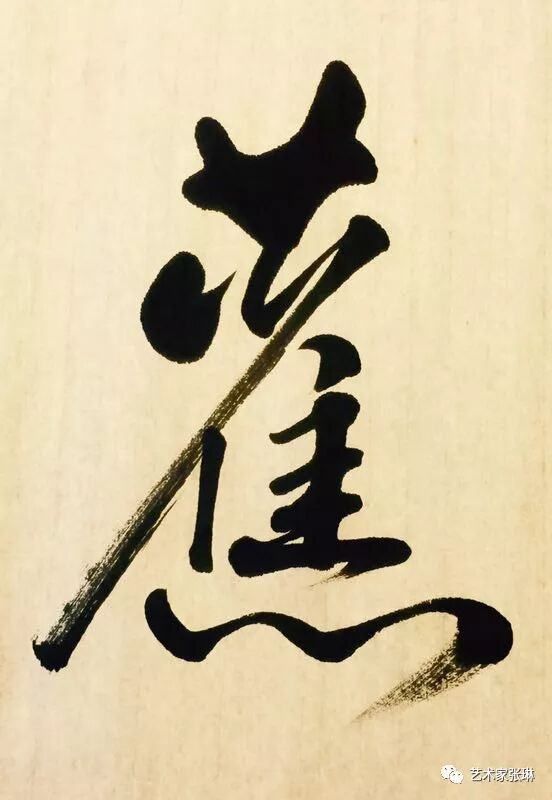 蕉
艺术家张琳